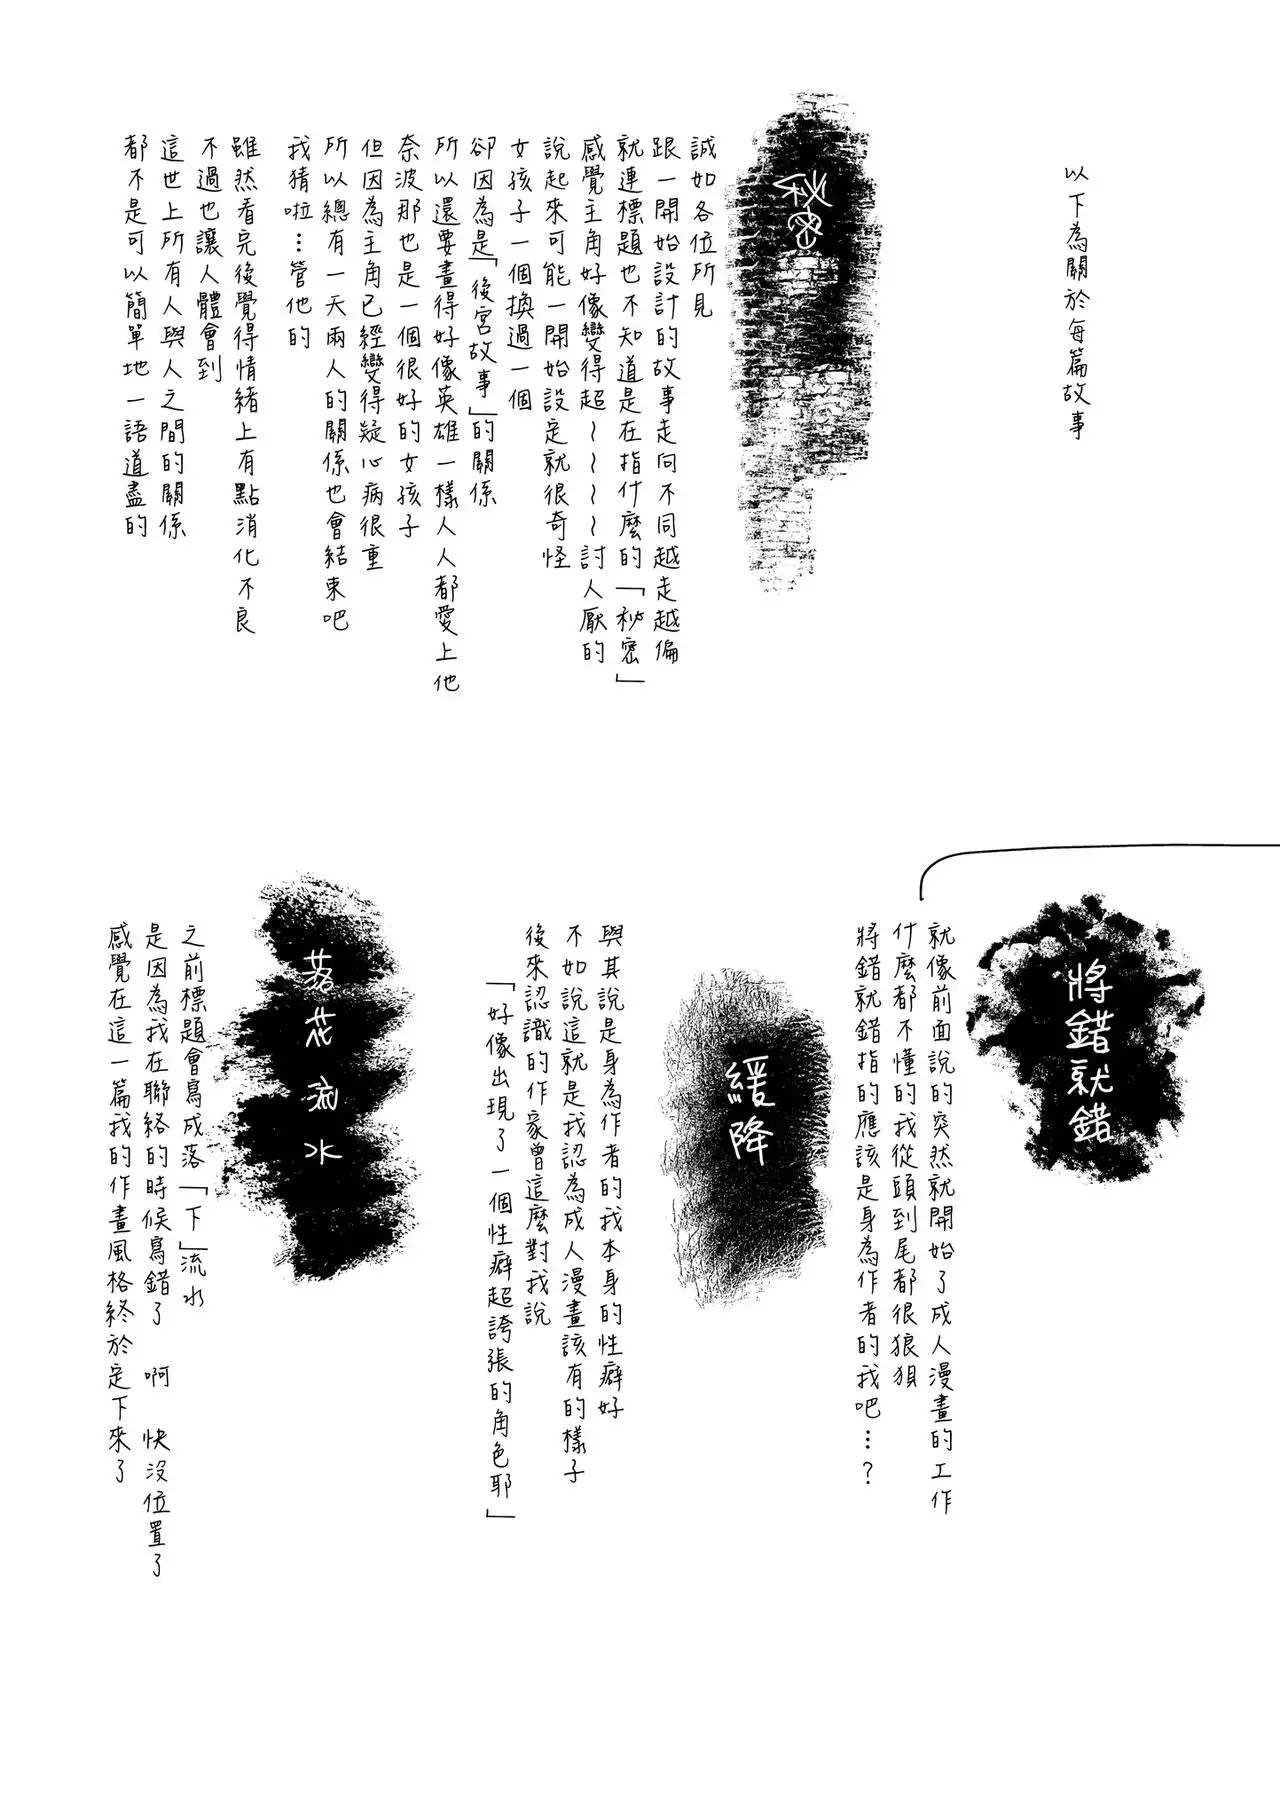 以下為關於每篇故事
秘密
誠如各位所見
跟一開始設計的故事走向不同越走越偏
就連標題也不知道是在指什麼的「秘密」
感覺主角好像變得超～～～～討人厭的
說起來可能一開始設定就很奇怪
女孩子一個換過一個
卻因為是「後宮故事」的關係
所以還要畫得好像英雄一樣人人都愛上他
奈波那也是一個很好的女孩子
但因為主角已經變得疑心病很重
所以總有一天兩人的關係也會結束吧
我猜啦…管他的
雖然看完後覺得情緒上有點消化不良
不過也讓人體會到
這世上所有人與人之間的關係
都不是可以簡單地一語道盡的
將錯就錯
就像前面說的突然就開始了成人漫畫的工作
什麼都不懂的我從頭到尾都很狼狽
將錯就錯指的應該是身為作者的我吧…？
緩降
與其說是身為作者的我本身的性癖好
不如說這就是我認為成人漫畫該有的樣子
後來認識的作家曾這麼對我說
「好像出現了一個性癖超誇張的角色耶」
落花流水
之前標題會寫成落「下」流水
是因為我在聯絡的時候寫錯了 啊 快沒位置了
感覺在這一篇我的作畫風格終於定下來了